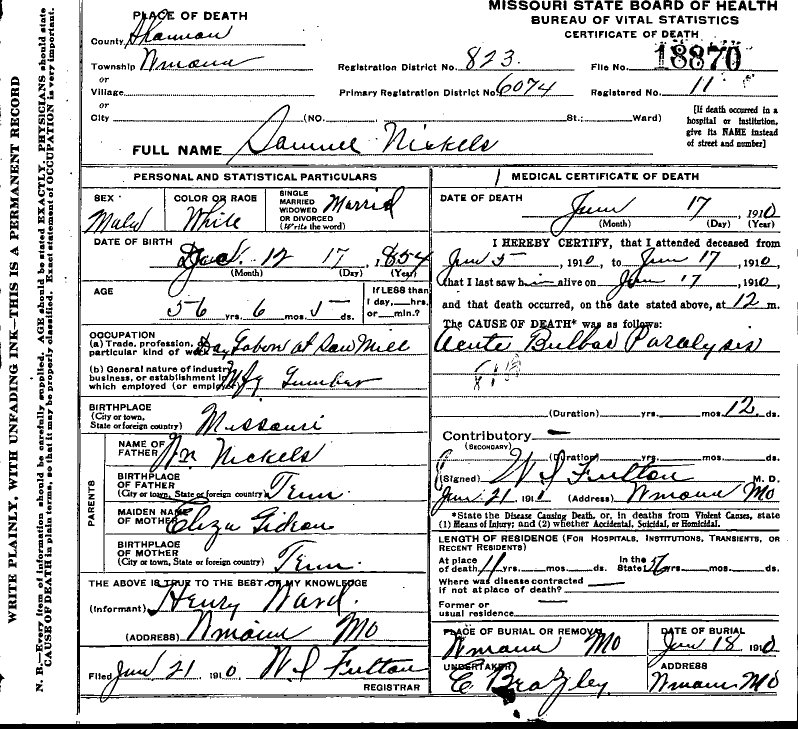 MISSOURI STATE BOARD OF HEALTH
BUREAU OF VITAL STATISTICS
CERTIFICATE OF DEATH
PLACE OF DEATH
County Shannon
Township Winona
or
Village
or
City (NO. St.; Ward)
Registration District No. 823
File No. 18870
Primary Registration District No. 6074
Registered No. 11
[If death occurred in a hospital or institution, give its NAME instead of street and number]
FULL NAME Samuel Nickels
PERSONAL AND STATISTICAL PARTICULARS
SEX Male
COLOR OR RACE White
SINGLE MARRIED WIDOWED OR DIVORCED (Write the word) Married
DATE OF BIRTH Dec. 12 17, 1854
(Month) (Day) (Year)
AGE 56 yrs. 6 mos. 5 ds.
If LESS than 1 day, hrs. or min.?
OCCUPATION
(a) Trade, profession, or particular kind of work Day Labor at Saw Mill
(b) General nature of industry, business, or establishment in which employed (or employer) Mfg Lumber
BIRTHPLACE
(City or town, State or foreign country) Missouri
PARENTS
NAME OF FATHER Wm Nickels
BIRTHPLACE OF FATHER
(City or town, State or foreign country) Tenn.
MAIDEN NAME OF MOTHER Eliza Gideon
BIRTHPLACE OF MOTHER
(City or town, State or foreign country) Tenn.
THE ABOVE IS TRUE TO THE BEST OF MY KNOWLEDGE
(Informant) Henry Ward.
(ADDRESS) Winona Mo
Filed Jun 21 1910 W S Fulton
REGISTRAR
MEDICAL CERTIFICATE OF DEATH
DATE OF DEATH June 17, 1910
(Month) (Day) (Year)
I HEREBY CERTIFY, that I attended deceased from
Jun 5, 1910, to Jun 17, 1910,
that I last saw him alive on Jun 17, 1910,
and that death occurred, on the date stated above, at 12 m.
The CAUSE OF DEATH* was as follows:
Acute Bulbar Paralysis
(Duration) yrs. mos. 12 ds.
Contributory —
(SECONDARY)
(Duration) yrs. mos. ds.
(Signed) W S Fulton M. D.
Jun 21 1910 (Address) Winona Mo
*State the Disease Causing Death, or, in deaths from Violent Causes, state
(1) Means of Injury; and (2) whether Accidental, Suicidal, or Homicidal.
LENGTH OF RESIDENCE (FOR HOSPITALS, INSTITUTIONS, TRANSIENTS, OR RECENT RESIDENTS)
At place of death 11 yrs. mos. ds. In the State 56 yrs. mos. ds.
Where was disease contracted —
if not at place of death?
Former or usual residence —
PLACE OF BURIAL OR REMOVAL Winona Mo
DATE OF BURIAL Jun 18 1910
UNDERTAKER C Brazley
ADDRESS Winona Mo
WRITE PLAINLY, WITH UNFADING INK—THIS IS A PERMANENT RECORD
N. B.—Every item of information should be carefully supplied. AGE should be stated EXACTLY. PHYSICIANS should state
CAUSE OF DEATH in plain terms, so that it may be properly classified. Exact statement of OCCUPATION is very important.